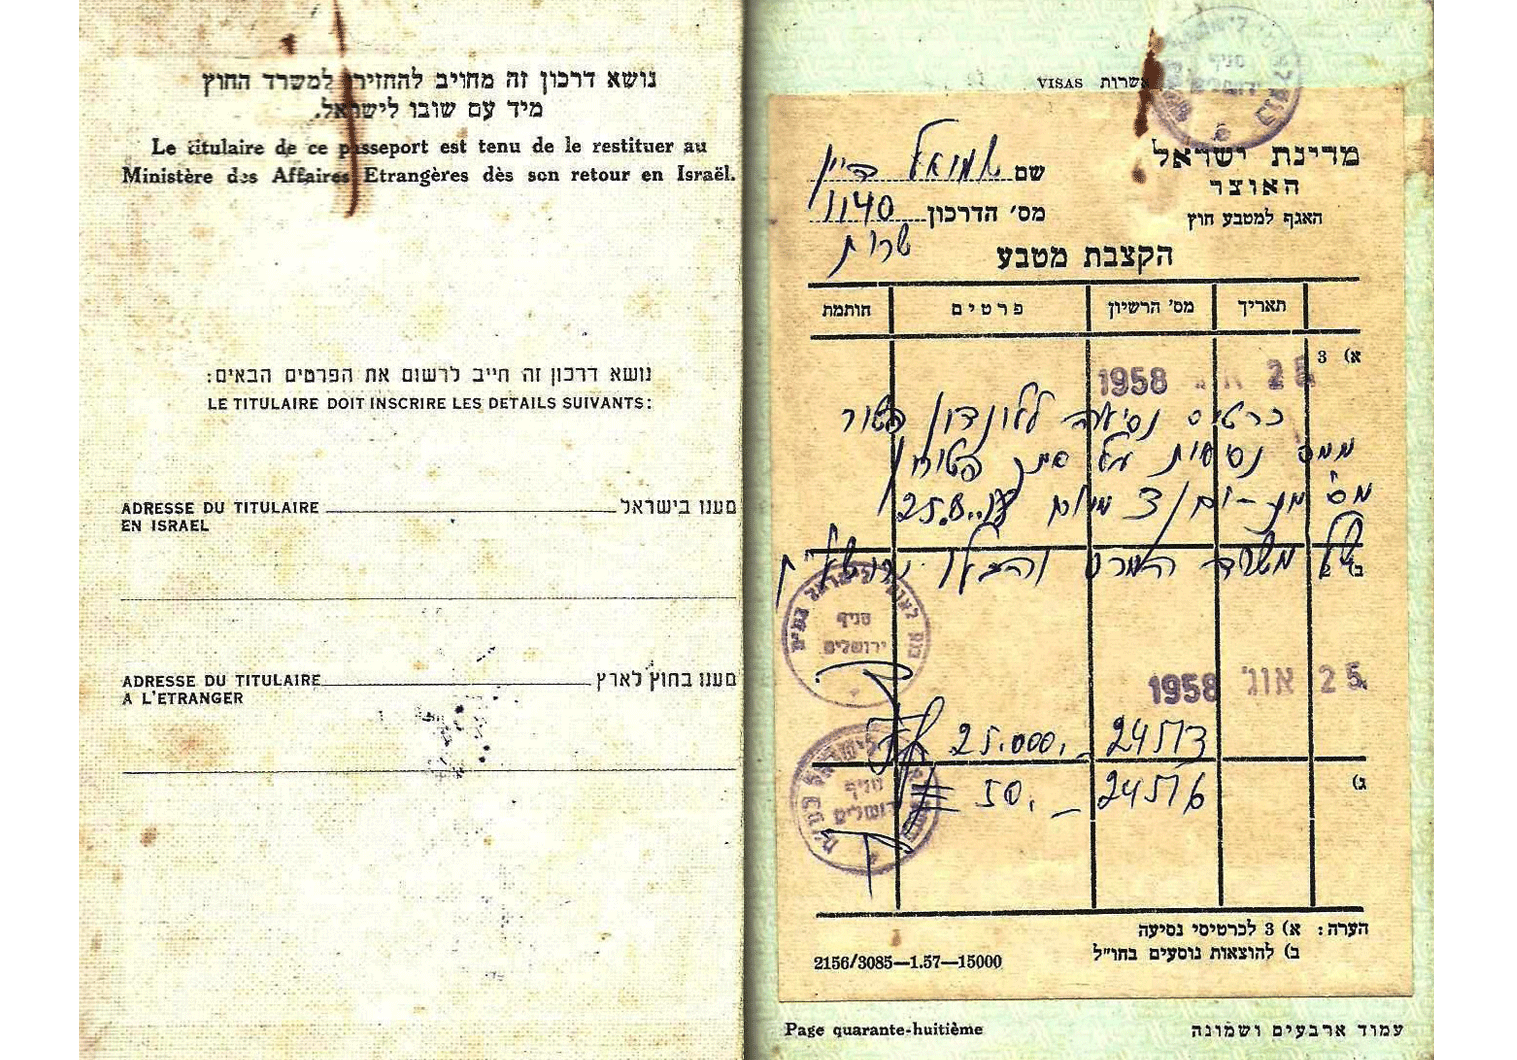 נושא דרכון זה מחויב להחזירו למשרד החוץ
מיד עם שובו לישראל.
Le titulaire de ce passeport est tenu de le restituer au
Ministère des Affaires Etrangères dès son retour en Israël.
נושא דרכון זה חייב לרשום את הפרטים הבאים:
LE TITULAIRE DOIT INSCRIRE LES DETAILS SUIVANTS:
ADRESSE DU TITULAIRE מענו בישראל
EN ISRAEL
ADRESSE DU TITULAIRE מענו בחוץ לארץ
A L'ETRANGER
VISAS אשרות
סניף
ירושלים
מדינת ישראל
האוצר
האגף למטבע חוץ
שם שמואל דיין
מס' הדרכון 1140
שרות
הקצבת מטבע
תאריך מס' הרשיון פרטים חותמת
א) 3
25 1958
כרטיס נסיעה ללונדון
של משרד
ב)
סניף
ירושלים
25 אוג' 1958
24573 25.000.-
ג)
24576 50.-
סניף
ירושלים
הערה: א) 3 לכרטיסי נסיעה
ב) להוצאות נוסעים בחו"ל
2156/3085—1.57—15000
Page quarante-huitième עמוד ארבעים ושמונה